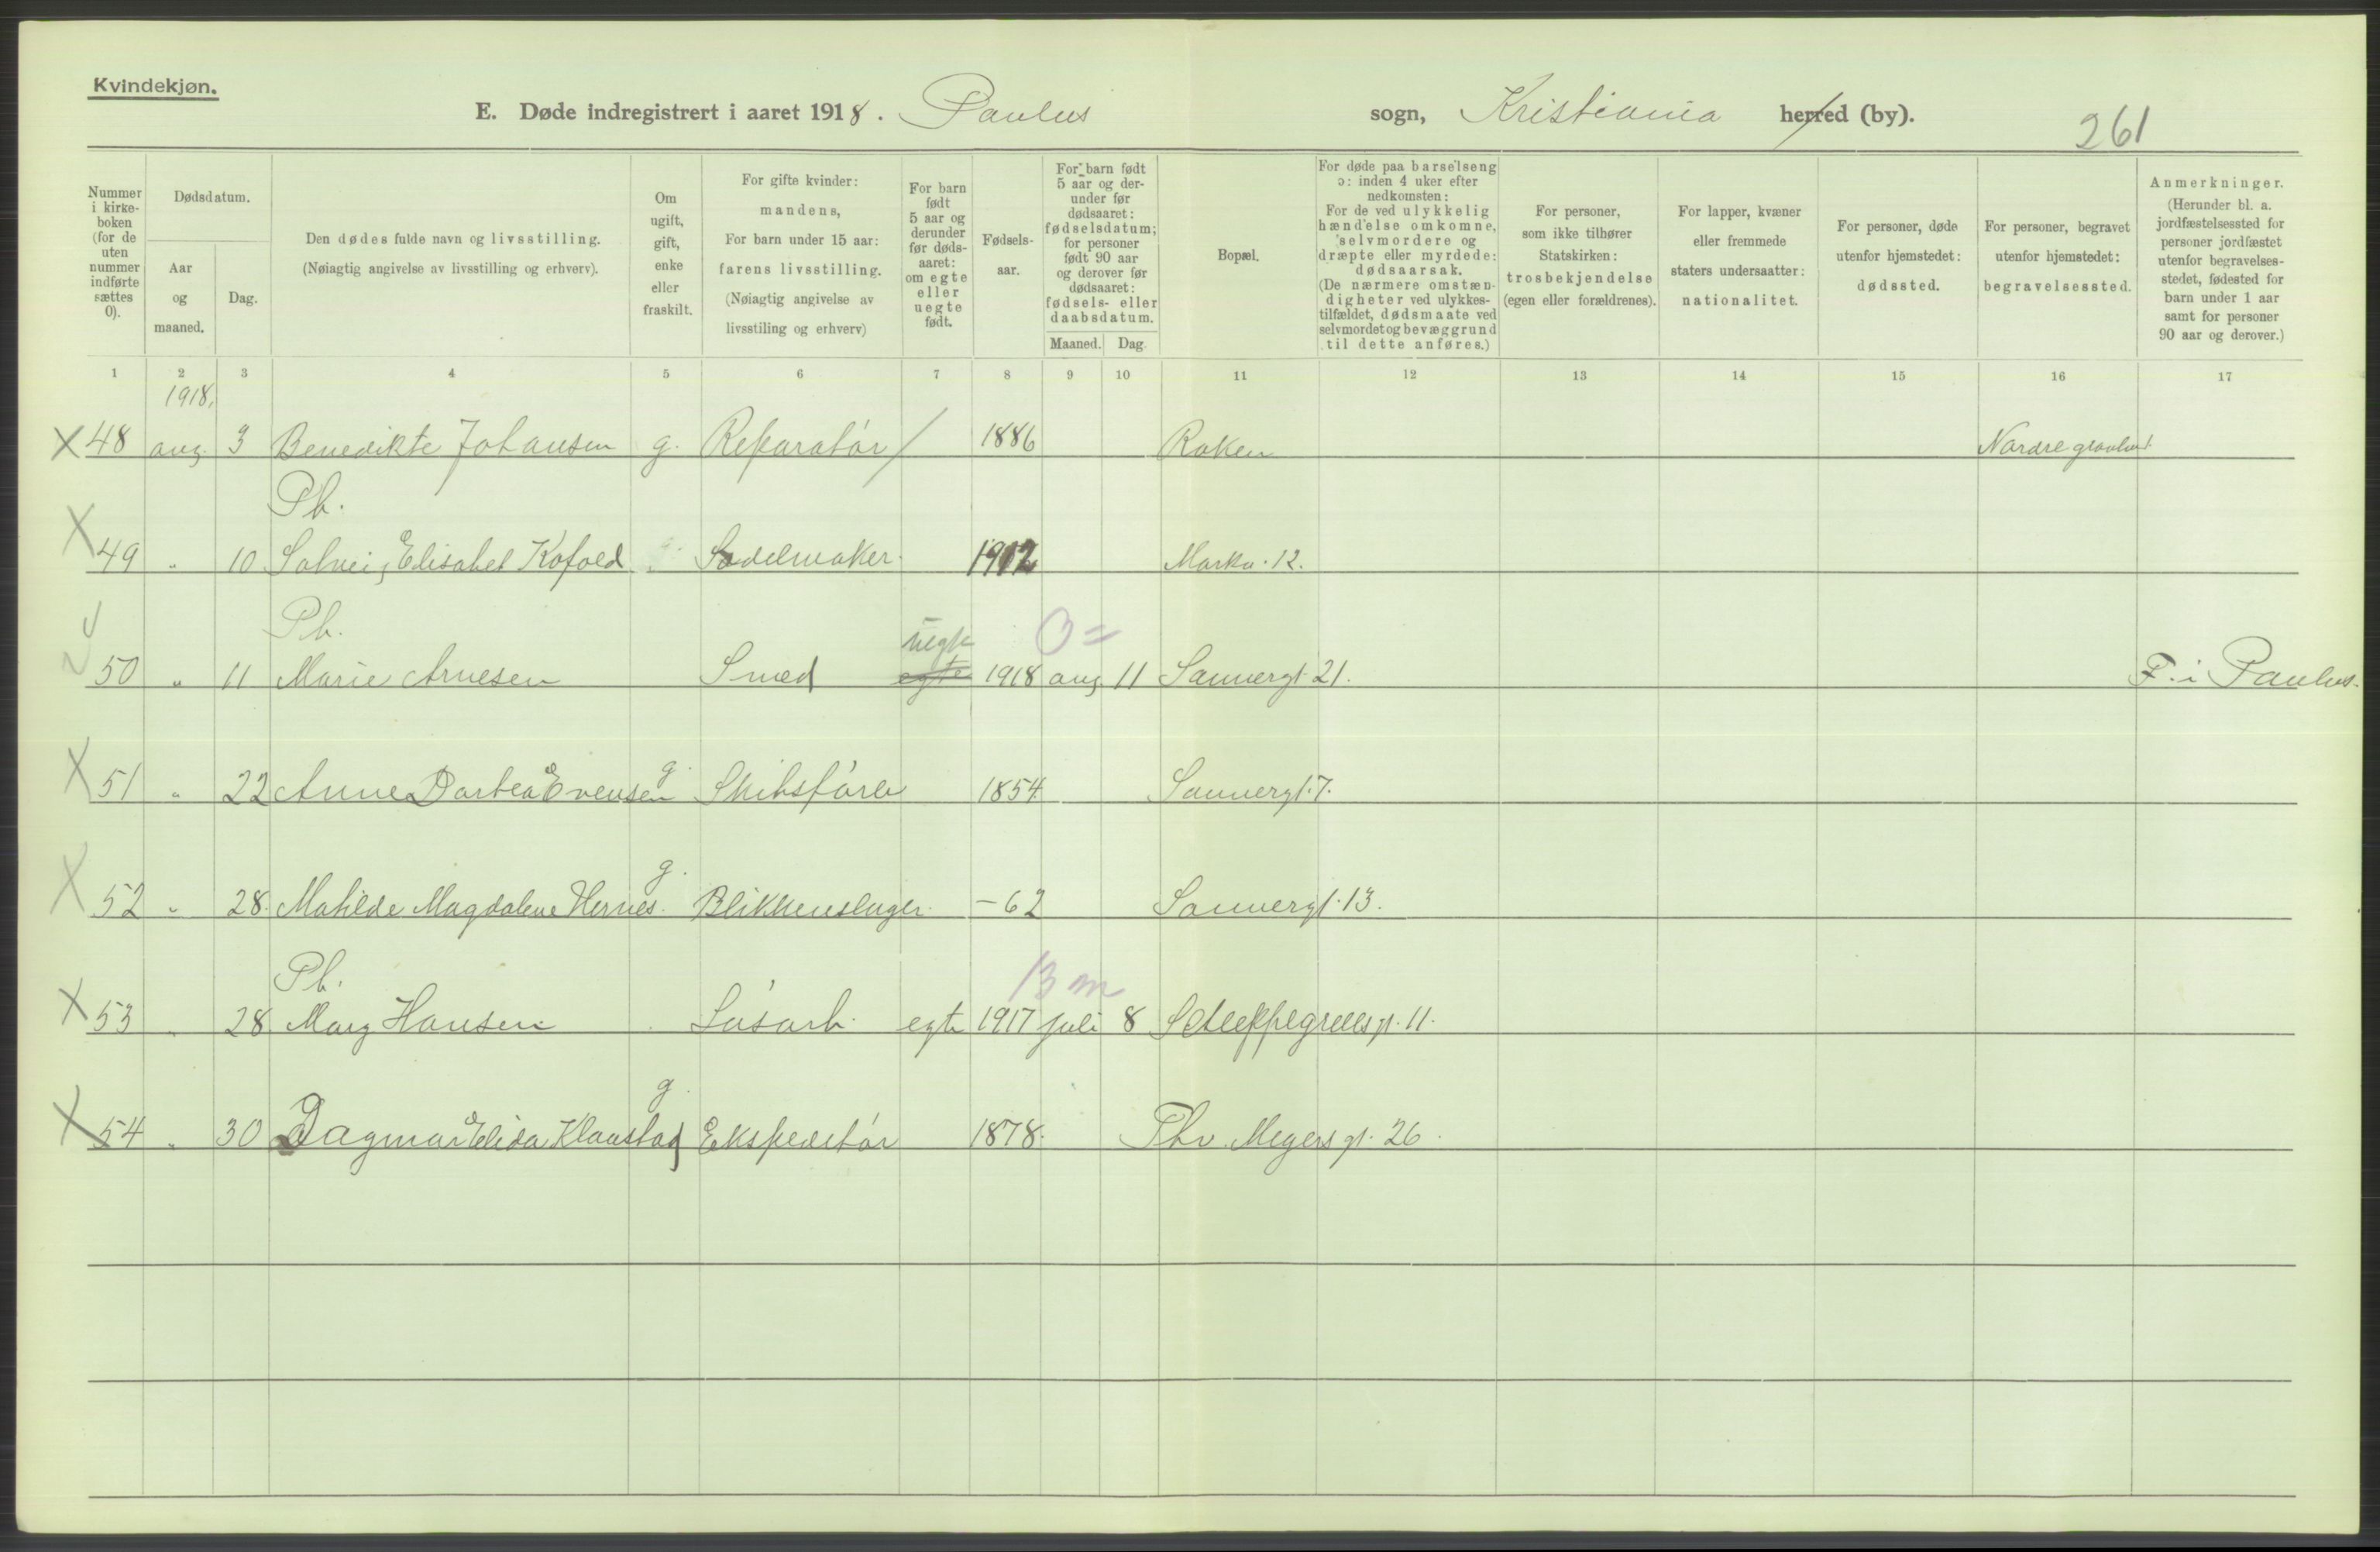 Kvindekjøn.
E. Døde indregistrert i aaret 1918. Paulus sogn, Kristiania herred (by).
261
Nummer i kirke-boken (for de uten nummer indførte sættes 0).
Dødsdatum.
Aar og maaned.
Dag.
Den dødes fulde navn og livsstilling.
(Nøiagtig angivelse av livsstilling og erhverv).
Om ugift, gift, enke eller fraskilt.
For gifte kvinder: mandens,
For barn under 15 aar: farens livsstilling.
(Nøiagtig angivelse av livsstiling og erhverv)
For barn født 5 aar og derunder før døds-aaret: om egte eller uegte født.
Fødsels-aar.
For barn født 5 aar og der-under før dødsaaret: fødselsdatum; for personer født 90 aar og derover før dødsaaret: fødsels- eller daabsdatum.
Maaned. Dag.
Bopæl.
For døde paa barselseng ɔ: inden 4 uker efter nedkomsten:
For de ved ulykkelig hændelse omkomne, selvmordere og dræpte eller myrdede: dødsaarsak.
(De nærmere omstæn-digheter ved ulykkes-tilfældet, dødsmaate ved selvmordet og bevæggrund til dette anføres.)
For personer, som ikke tilhører Statskirken: trosbekjendelse (egen eller forældrenes).
For lapper, kvæner eller fremmede staters undersaatter: nationalitet.
For personer, døde utenfor hjemstedet: dødssted.
For personer, begravet utenfor hjemstedet: begravelsessted.
Anmerkninger.
(Herunder bl. a. jordfæstelsessted for personer jordfæstet utenfor begravelses-stedet, fødested for barn under 1 aar samt for personer 90 aar og derover.)
1 2 3 4 5 6 7 8 9 10 11 12 13 14 15 16 17
1918.
X 48 aug. 3 Benedikte Johansen g. Reparatør / 1886 Raken Nordre gravlund
Pb.
X 49 " 10 Solveig Elisabet Kofoed Sadelmaker 1912 Markv. 12.
Pb.
uegte 0=
50 " 11 Marie Arnesen Smed egte 1918 aug 11 Sannergt. 21. F. i Paulus.
X 51 " 22 Anne Dortea Evensen g. Skibsfører 1854 Sannergt. 7.
X 52 " 28. Matilde Magdalene Hernes. g. Blikkenslager. -62 Sannergt. 13.
Pb.
13 m
X 53 " 28. Mary Hansen Løsarb. egte 1917 juli 8 Schleppegrellsgt. 11.
X 54 " 30 Dagmar Elida Klaastad g. Ekspeditør 1878. Thv. Meyers gt. 26.